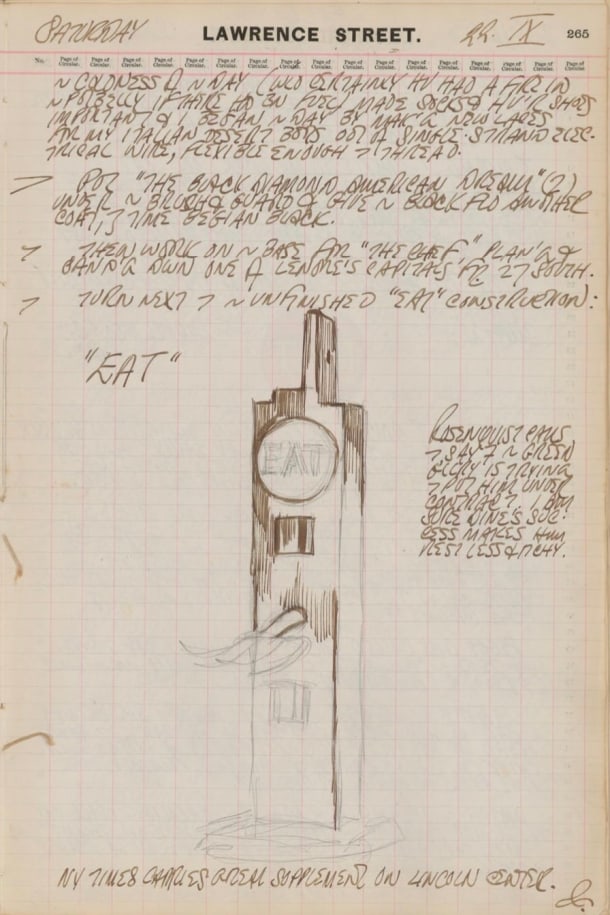 SATURDAY LAWRENCE STREET. 22. IX 265
No. Page of Circular. Page of Circular. Page of Circular. Page of Circular. Page of Circular. Page of Circular. Page of Circular. Page of Circular. Page of Circular. Page of Circular. Page of Circular. Page of Circular. Page of Circular. Page of Circular. Page of Circular. Page of Circular. Page of Circular.
~ COLDNESS OF ~ DAY (WLD CERTAINLY HV HAD A FIRE IN
~ POTBELLY IF THERE HD BN FUEL) MADE SOCKS & HV'R SHOES
IMPORTANT & I BEGAN ~ DAY BY MAK'G NEW LACES
FOR MY ITALIAN DESERT BOOTS OUT OF SINGLE-STRAND ELEC-
TRICAL WIRE, FLEXIBLE ENOUGH TO THREAD.
PUT "THE BLACK DIAMOND AMERICAN DREAM" (2)
UNDER ~ BRUSH & GUARD & GIVE ~ BLACK FLD ANOTHER
COAT, TIME BEGIAN BLACK.
THEN WORK ON ~ BASE FOR "THE CHIEF" PLAN'G &
SAND'G DOWN ONE OF LENORE'S CAPITALS FR 27 SOUTH.
TURN NEXT TO ~ UNFINISHED "EAT" CONSTRUCTION:
"EAT"
EAT
ROSENQUIST CALLS
TO SAY ~ GREEN
GLRY IS TRYING
TO PUT HIM UNDER
CONTRACT. I AM
SURE DINE'S SUC-
CESS MAKES HIM
RESTLESS & ITCHY.
NY TIMES CARRIES GREAT SUPPLEMENT ON LINCOLN CENTER.